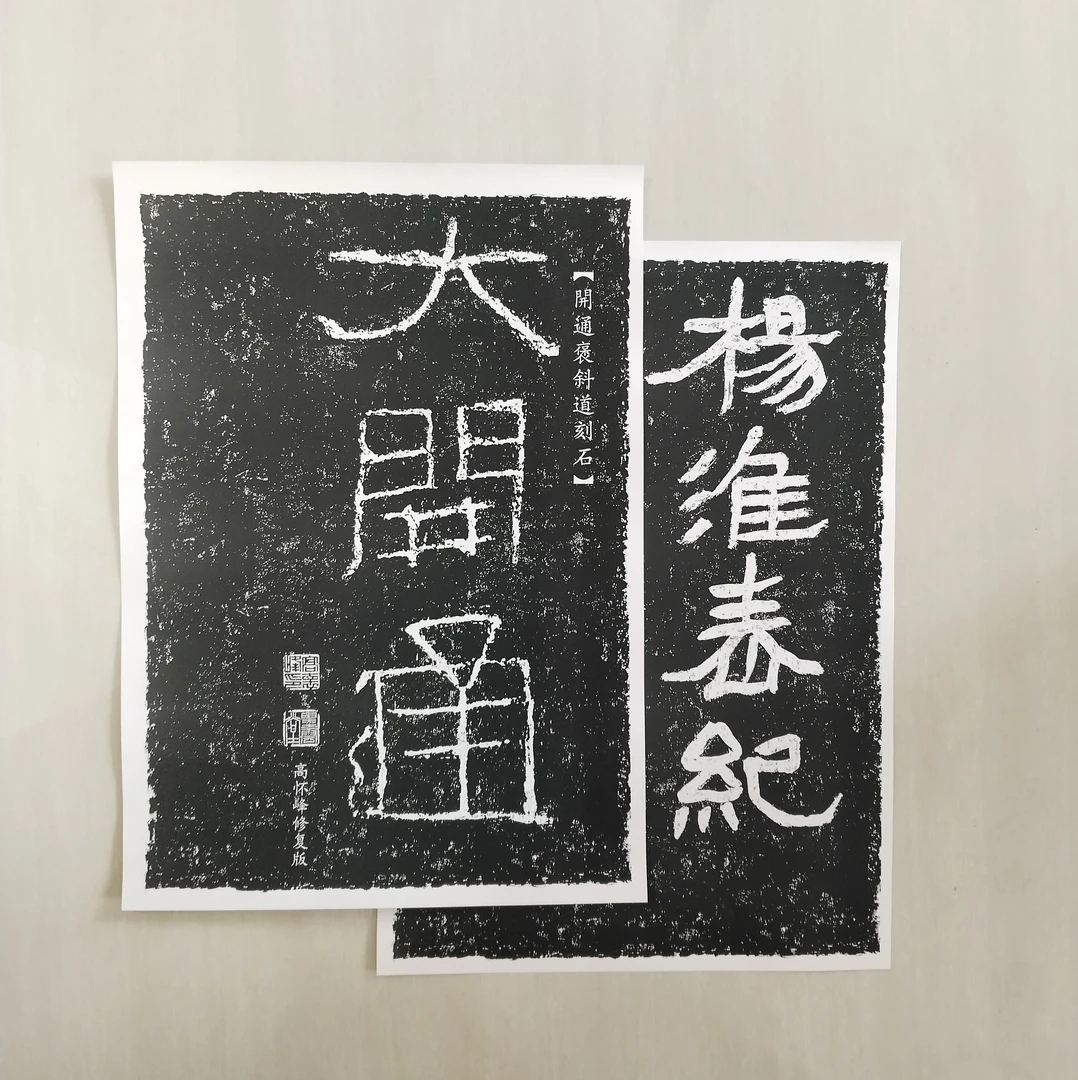 楊淮表紀
【開通褒斜道刻石】
大開通
高怀峰修复版